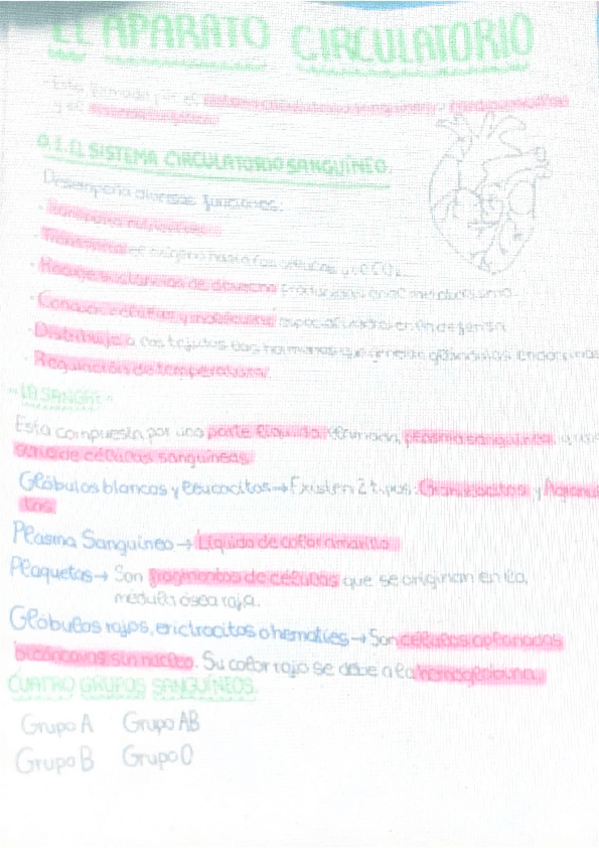 EL APARATO CIRCULATORIO
Está formado por el sistema circulatorio sanguíneo o cardiovascular
y el
0.1. EL SISTEMA CIRCULATORIO SANGUÍNEO.
Desempeña diversas funciones:
· Transporta nutrientes
· Transporta el oxígeno hasta las células y el CO2
· Recoge sustancias de desecho producidas en el metabolismo.
· Conduce células y moléculas especializadas en defensa
· Distribuye a los tejidos las hormonas que generan glándulas endocrinas
· Regulación de temperatura.
"LA SANGRE"
Esta compuesta por una parte líquida llamada, plasma sanguíneo, y una
serie de células sanguíneas.
Glóbulos blancos y leucocitos → Existen 2 tipos: Granulocitos y Agranuloci
tos.
Plasma Sanguíneo → Líquido de color amarillo
Plaquetas → Son fragmentos de células que se originan en la,
médula ósea roja.
Glóbulos rojos, erictrocitos o hematíes → Son células aplanadas
bicóncavas sin núcleo. Su color rojo se debe a la hemoglobina.
CUATRO GRUPOS SANGUÍNEOS.
Grupo A Grupo AB
Grupo B Grupo O